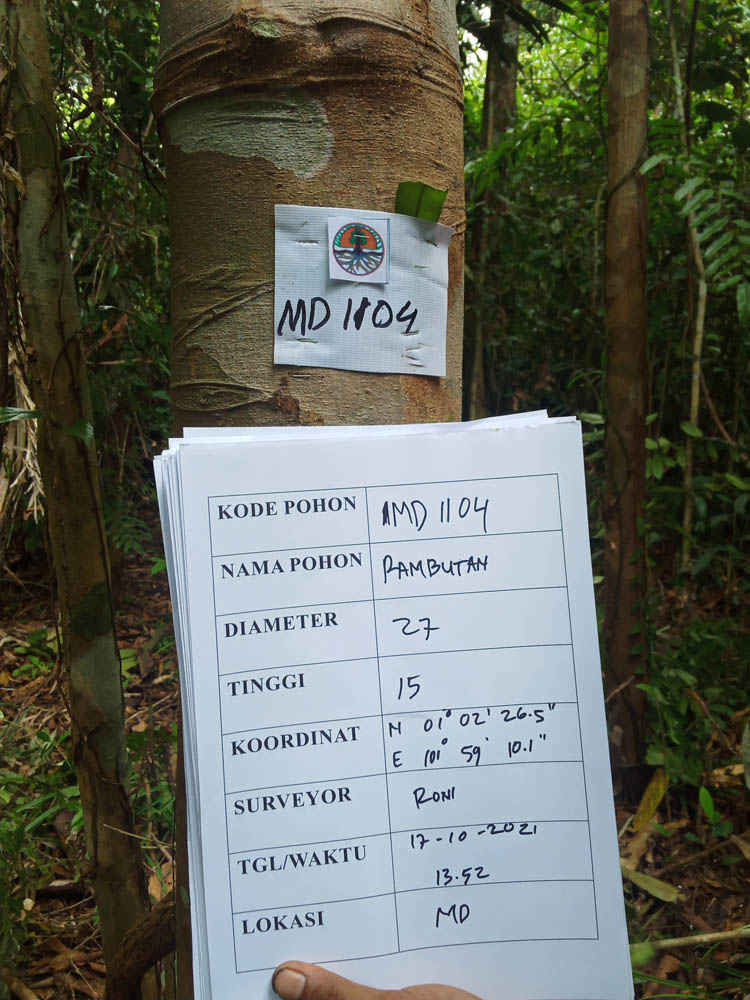 MD 1104
KODE POHON MD 1104
NAMA POHON RAMBUTAN
DIAMETER 27
TINGGI 15
KOORDINAT N 01° 02' 26.5"
E 101° 59' 10.1"
SURVEYOR RONI
TGL/WAKTU 17-10-2021
13.52
LOKASI MD